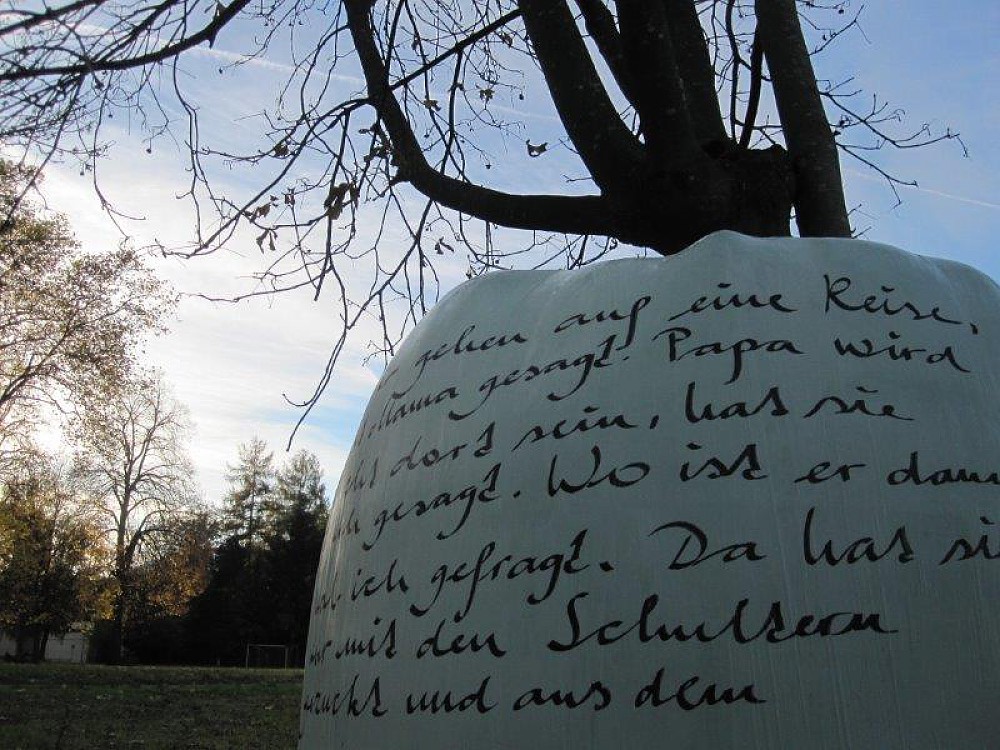 gehen auf eine Reise,
Mama gesagt. Papa wird
dort sein, hat sie
gesagt. Wo ist er dann
ich gefragt. Da hat sie
mit den Schultern
und aus dem